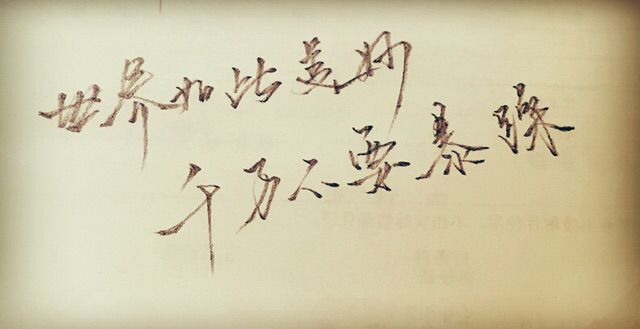 世界如此美妙
千万不要暴躁